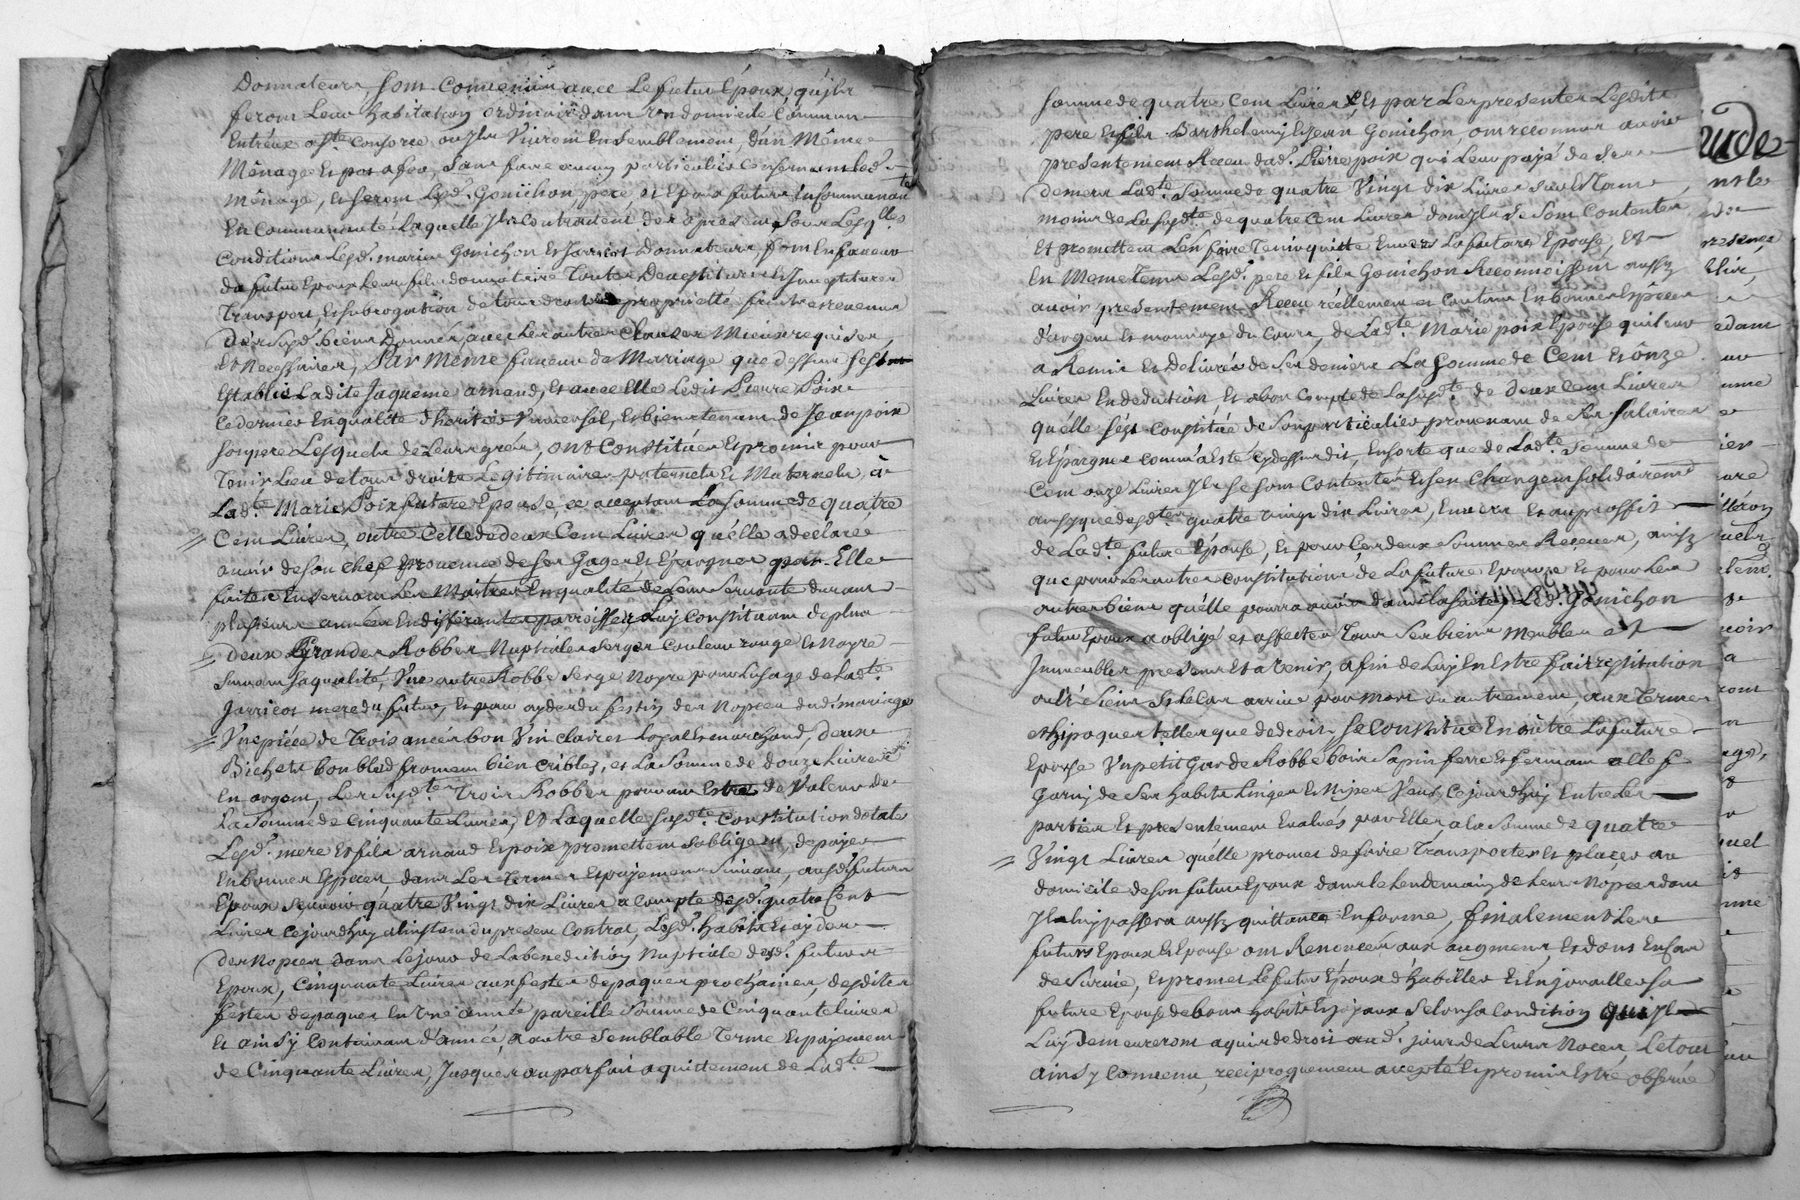 Donnateurs, sont Convenües avec Le futur Epoux, qu'jls
feront Leur habitation ordinaire dans Un domicile Commun
Entreux aste Consorce ou jls Vivront Ensemblement, d'un Même
Ménage Et pot à feu, sans faire aucun particulier
ménage, Et seront Lesd.s Gonichon pere, et Epoux futur
En Communauté laquelle jls contractent des apresent sous Lesq.lles
Conditions Lesd.s mariés Gonichon Et Jarricot Donnateurs font En faveur
du futur Epoux Leur fils donnataire Toutes Devestitures Investitures
Transport, Et subrogation de tour propriettés fruits revenus
Des susd.s biens Donnés, avec Les autres Clauses Mieux requises
Et Necessaires, Par Même faveur du Mariage que dessus
Establie Ladite Jaqueme arnaud, Et avec Elle Ledit Pierre Poix
Ce dernier En qualité d'heritier Universel, Et bientenant de Jean poix
son pere Lesquels de Leurs grés, ont Constitués Et promis pour
Tenir Lieu de tous droits Legitimaires paternels Et Maternels, à
Lad.te Marie Poix future Epouse, ce acceptant La somme de quatre
Cent Livres, outre Celle de deux Cent Livres qu'elle a déclarée
avoir de son chef Provenue de ses Gages Et Epargnes par Elle
faites En servant Les Maitres En qualité de Leur servante durant
plusieurs années En différentes parroisses, Luy Constituant de plus
deux Grandes Robbes Nuptiales serges couleur rouge Et Noyre
suivant sa qualité, Une autre Robbe serge Noyre pour L'usage de Lad.te
Jarricot mere du futur, Et pour ayder du festin des Nopces dud. mariage
Une piéce de Trois anées bon Vin clairet Loyal Et marchand, deux
Bichets bon bled froment bien criblez, et La Somme de douze Livres
En argent, Les susd.tes Trois Robbes pouvant Estre de Valeur de
La somme de Cinquante Livres, Et Laquelle susd.te Constitution dotale
Lesd.s mere Et fils arnaud Et poix promettent s'obligent, de payer
En bonnes Especes, dans Les Termes Et payements suivants, ausd.s futurs
Epoux sçavoir quatre Vingt dix Livres a compte desd.s quatre Cent
Livres Cejourdhuy a l'instant du present Contrat, Lesd.s habits Et ayde
des Nopces dans Le jour de La benediction Nuptiale desd.s futurs
Epoux, Cinquante Livres aux festes de paques prochaines, desdites
festes de paques En Une année pareille somme de Cinquante livres
Et ainsy Continuant d'année, a autre semblable Terme Et payement
de Cinquante Livres, jusques au parfait aquittement de Lad.te
somme de quatre Cent Livres, Et par Les presentes Lesdits
pere Et fils Barthelemy Et Jean Gonichon, ont reconnus avoir
presentement Receu dud. Pierre poix qui Leur a payé de ses
deniers Lad.te somme de quatre Vingt dix Livres
moins de La susd.te de quatre Cent Livres dont jls se sont Contentés
Et promettent L'en faire Tenir quitte Envers La future Epouse, Et
En Même Temps Lesd.s pere Et fils Gonichon Reconnoissent aussy
avoir presentement Receu réellement et Contant En bonnes Especes
d'argent Et monnoye du Cours, de Lad.te Marie poix Epouse qui Leur
a Remis Et Delivrés de Ses deniers La somme de Cent Et ônze
Livres En deduction, Et a bon Compte de La susd.te de deux Cent Livres
qu'elle s'est constitué de Son particulier provenant de Ses Salaires
Et Epargnes comme a Esté cydessus dit, En sorte que de Lad.te somme de
Cent onze Livres jls se sont Contentés Et s'en chargent solidairement
aussy que desd.tes quatre vingt dix Livres, Envers Et au proffit
de Lad.te future Epouse, Et pour Ces deux sommes Reçeues, aussy
que pour Les autres constitutions de La future Epouse Et pour Les
autres biens qu'elle pourra avoir dans la suitte, Led. Gonichon
futur Epoux a obligé et affecter Tous ses biens Meubles Et
Immeubles presents Et a venir, afin de Luy En Estre fait restitution
ou a ses siens Si le Cas arrive par mort ou autrement, aux Termes
Et hipoques telles que de droit, se Constitue En outre La future
Epouse Un petit Garde Robbe bois Sapin ferré Et fermant a clef
Garny de Ses habits Linges Et Nipes Veus Cejourdhuy Entre Les
parties Et presentement Evalués par Elles, a la Somme de quatre
Vingt Livres qu'elle promet de faire Transporter Et placer au
domicile de son futur Epoux dans le Lendemain de Leurs Nopces dont
jl luy passera aussy quittance En forme, finalement Les
futurs Epoux Et Epouse ont Renoncés aux augment, Et dons En Cas
de Survie, Et promet Le futur Epoux d'habiller Et Enjoailler sa
future Epouse de bons habits Et joyaux Selon sa Condition qui
Luy demeureront aquis de droit aud. jour de Leurs Noces, Letout
ainsy Convenu, reciproquement accepté Et promis Estre observé